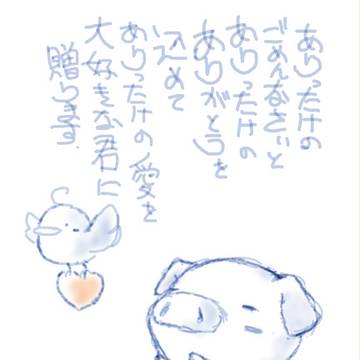 ありったけの
ごめんなさいと
ありったけの
ありがとうを
込めて
ありったけの愛を
大好きな君に
贈ります